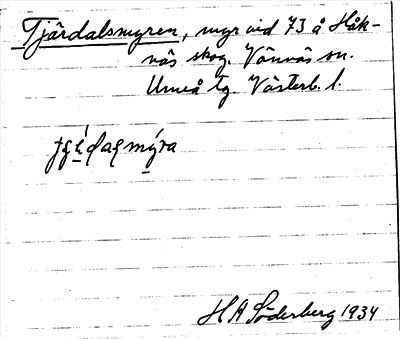 Tjärdalsmyren, myr vid 73 å Håk-
näs skog. Vännäs sn.
Umeå tg Västerb. l.
H A Söderberg 1934